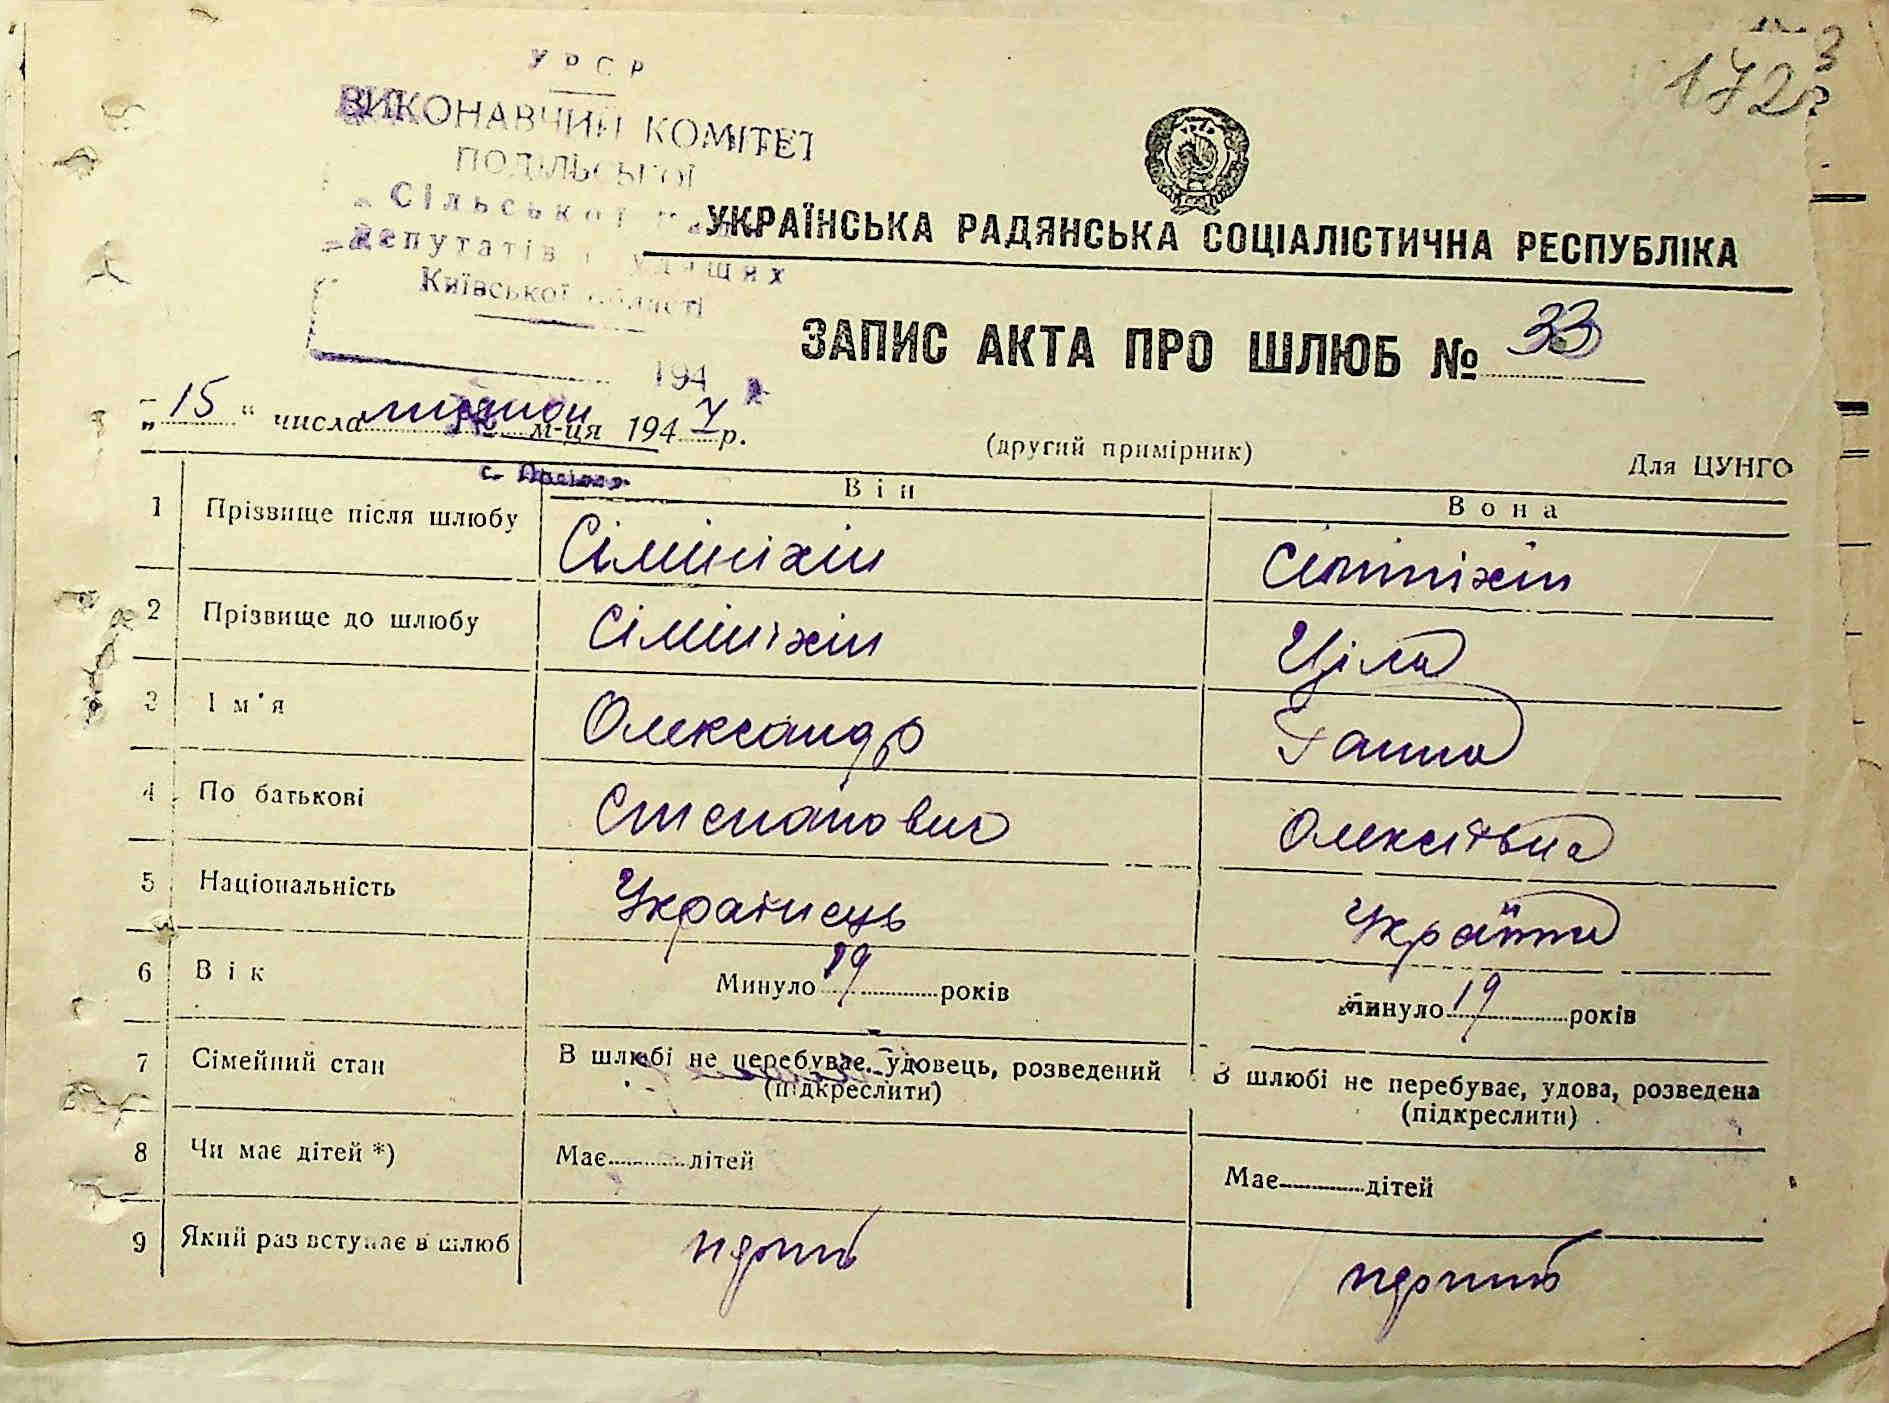 172
УРСР
ВИКОНАВЧИЙ КОМІТЕТ
ПОДІЛЬСЬКОЇ
Сільської
депутатів трудящих
Київської області
194
УКРАЇНСЬКА РАДЯНСЬКА СОЦІАЛІСТИЧНА РЕСПУБЛІКА
ЗАПИС АКТА ПРО ШЛЮБ № 33
„15“ числа м-ця 1947 р.
(другий примірник)
Для ЦУНГО
Він Вона
1 Прізвище після шлюбу Сімініхін Сімініхін
2 Прізвище до шлюбу Сімініхін Ціла
3 Ім'я Олександр Ганна
4 По батькові Степанович Олексіївна
5 Національність Українець Українка
6 Вік Минуло 19 років Минуло 19 років
7 Сімейний стан В шлюбі не перебуває, удовець, розведений (підкреслити) В шлюбі не перебуває, удова, розведена (підкреслити)
8 Чи має дітей *) Має дітей Має дітей
9 Який раз вступає в шлюб